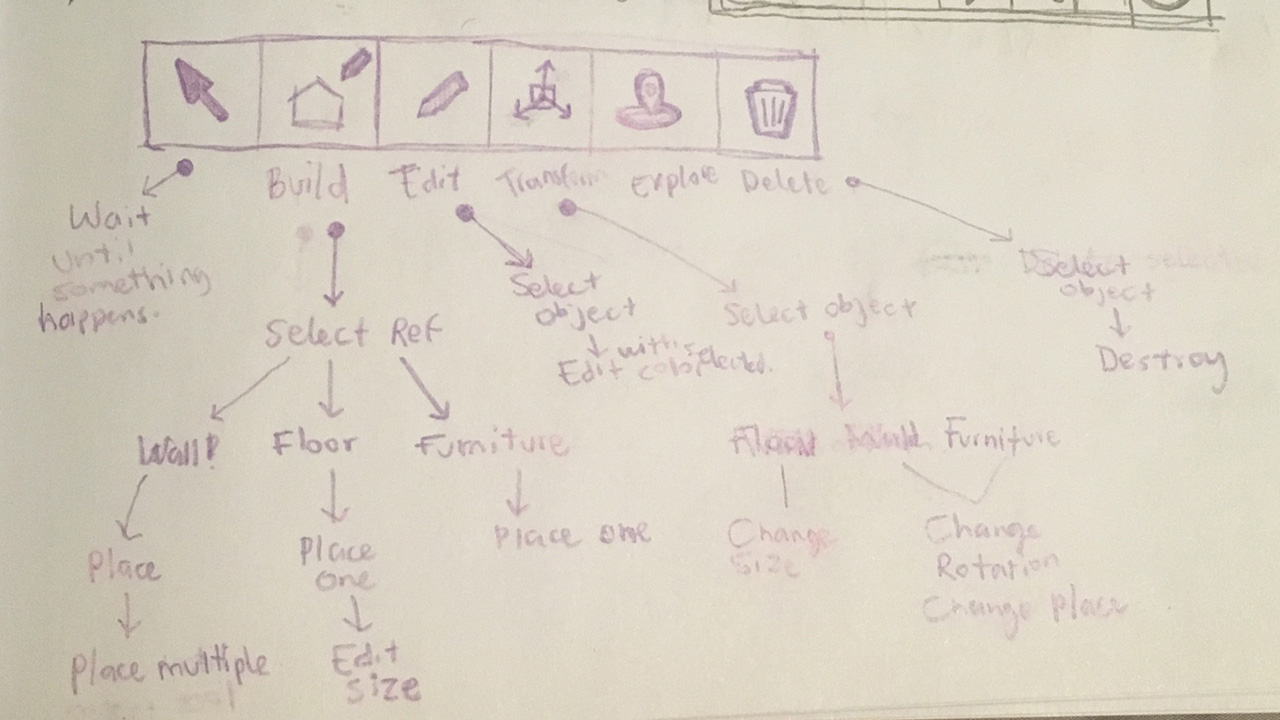 Build Edit Transform Explore Delete
Wait
until
something
happens.
Select Ref
Wall
Floor
Furniture
Place
Place multiple
Place
one
Edit
size
Place one
Select
object
Edit with selected
color
Select object
Floor Wall Furniture
Change
Size
Change
Rotation
Change Place
Select
object
Destroy